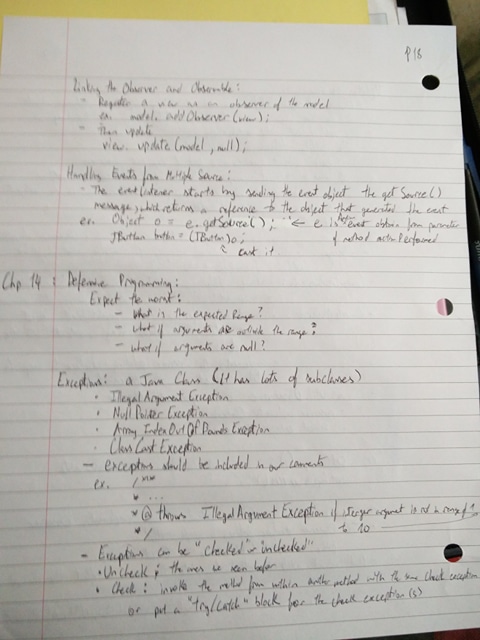 P18
Linking the Observer and Observable:
- Register a view as an observer of the model
ex. model.addObserver(view);
- Then update
view.update(model, null);
Handling Events from Multiple Source:
- The event listener starts by sending the event object the getSource()
message, which returns a reference to the object that generated the event
ex. Object o = e.getSource(); ← e is Action event obtain from parameter
JButton button = (JButton)o; of method actionPerformed
cast it
Chp 14: Defensive Programming:
Expect the worst:
- What is the expected Range?
- what if arguments are outside the range?
- what if arguments are null?
Exceptions: a Java Class (it has lots of subclasses)
• Illegal Argument Exception
• Null Pointer Exception
• Array Index Out Of Bounds Exception
• Class Cast Exception
- exceptions should be included in our comments
ex. /**
* ...
* @ throws Illegal Argument Exception if integer argument is not in range of 1
*/ to 10
- Exceptions can be "checked" or "unchecked"
• Uncheck: the ones we seen before
• Check: invoke the method from within another method with the same check exception
or put a "try/catch" block for the check exception(s)